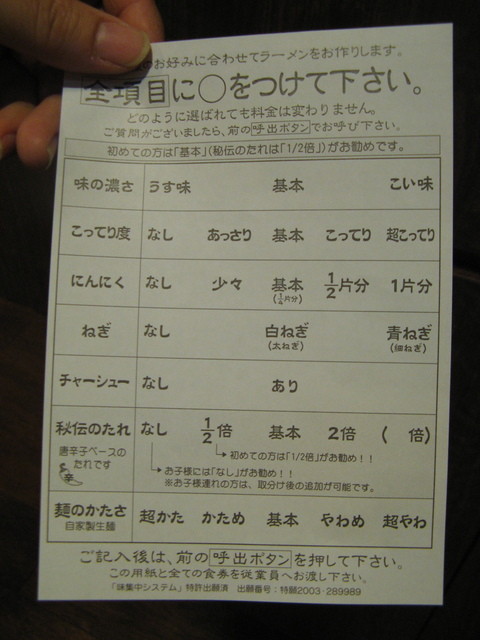 のお好みに合わせてラーメンをお作りします。
全項目に○をつけて下さい。
どのように選ばれても料金は変わりません。
ご質問がございましたら、前の呼出ボタンでお呼び下さい。
初めての方は「基本」(秘伝のたれは「1/2倍」)がお勧めです。
味の濃さ うす味 基本 こい味
こってり度 なし あっさり 基本 こってり 超こってり
にんにく なし 少々 基本 1/2片分 1片分
(1/4片分)
ねぎ なし 白ねぎ 青ねぎ
(太ねぎ) (細ねぎ)
チャーシュー なし あり
秘伝のたれ なし 1/2倍 基本 2倍 ( 倍)
唐辛子ベースの
たれです
辛
初めての方は「1/2倍」がお勧め!!
お子様には「なし」がお勧め!!
※お子様連れの方は、取分け後の追加が可能です。
麺のかたさ 超かた かため 基本 やわめ 超やわ
自家製生麺
ご記入後は、前の呼出ボタンを押して下さい。
この用紙と全ての食券を従業員へお渡し下さい。
「味集中システム」特許出願済 出願番号:特願2003-289989